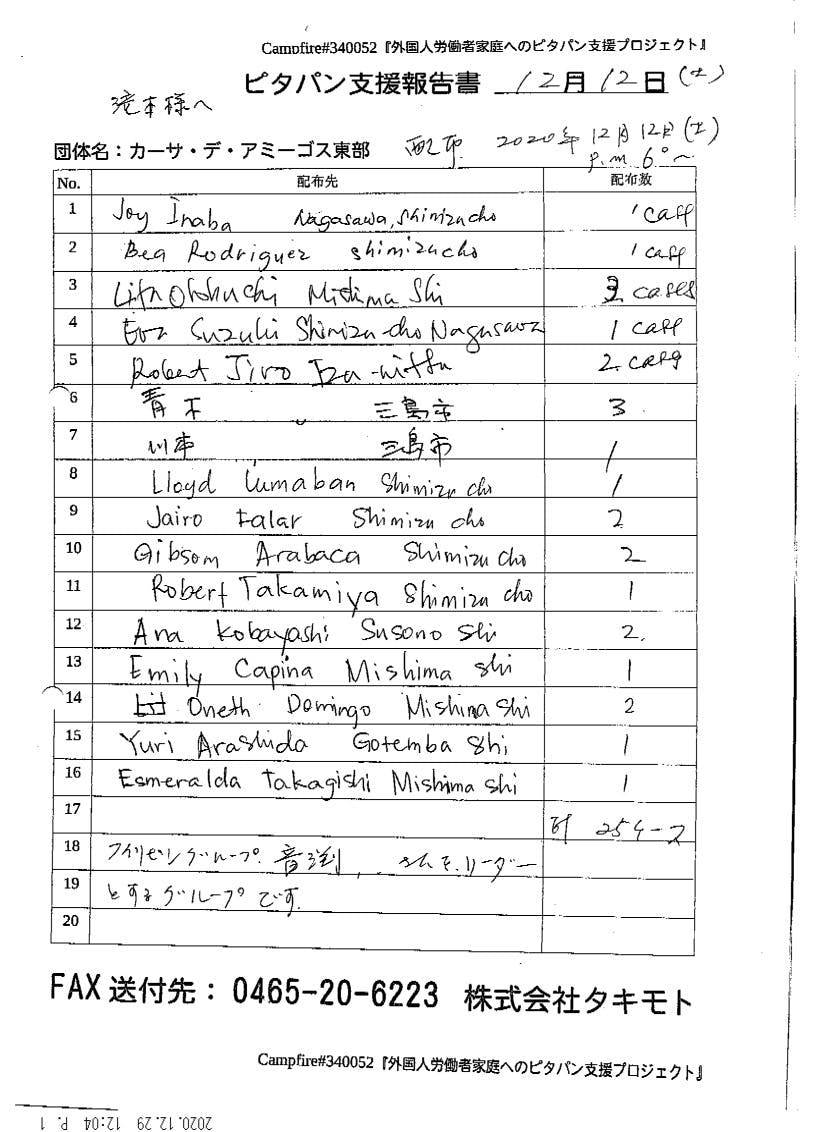 Campfire#340052『外国人労働者家庭へのピタパン支援プロジェクト』
ピタパン支援報告書 12月12日(土)
滝本様へ
団体名：カーサ・デ・アミーゴス東部 配布 2020年12月12日(土)
p.m 6°~
No. 配布先 配布数
1 Joy Inaba Nagasawa, Shimizucho 1 case
2 Bea Rodriguez shimizucho 1 case
3 Lita Mishima Shi 2 cases
4 Eva Suzuki Shimizu-cho Nagasawa 1 case
5 Robert Jiro Iza-nitta 2 case
6 青木 三島市 3
7 川本 三島市 1
8 Lloyd Lumaban Shimizu cho 1
9 Jairo Falar Shimizu cho 2
10 Gibsom Arabaca Shimizu cho 2
11 Robert Takamiya Shimizu cho 1
12 Ana Kobayashi Susono Shi 2.
13 Emily Capina Mishima shi 1
14 Oneth Domingo Mishima Shi 2
15 Yuri Arashida Gotemba Shi 1
16 Esmeralda Takagishi Mishima shi 1
17 計 25ケース
18 フィリピングループ. 音羽, さんをリーダー
19 とするグループです.
20
FAX 送付先： 0465-20-6223 株式会社タキモト
Campfire#340052『外国人労働者家庭へのピタパン支援プロジェクト』
2020.12.29 12:04 P. 1